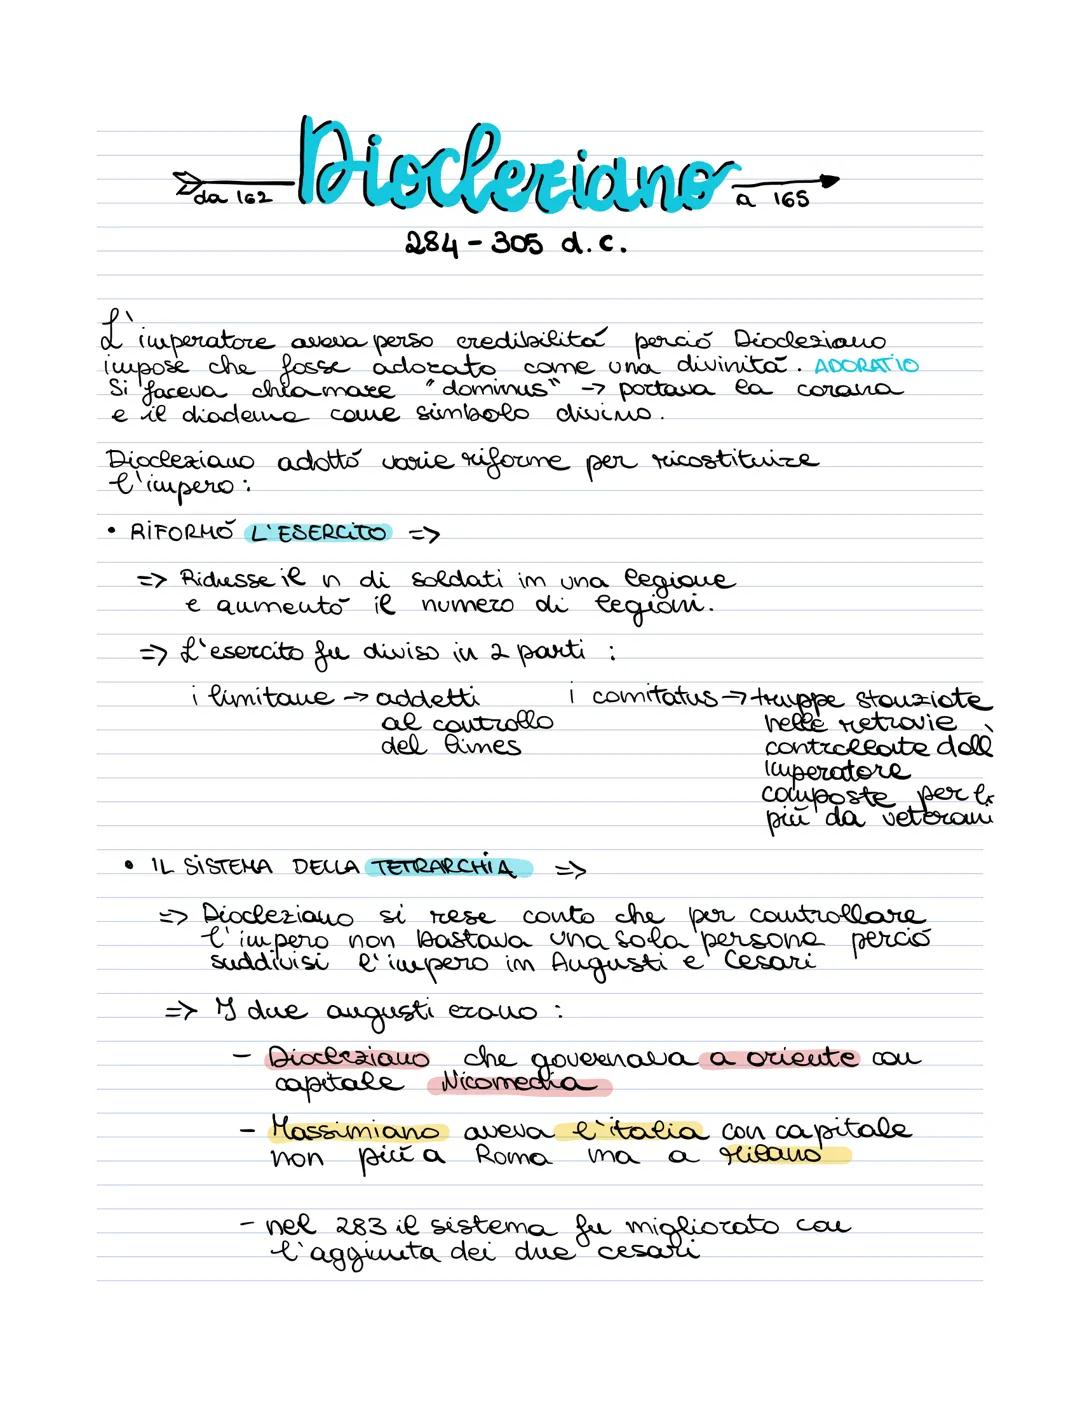 Diocleziano
da 162
a 165
284 - 305 d.c.
L'imperatore aveva perso credibilitá perció Diocleziano
impose che fosse adorato come una divinitá. ADORATIO
Si faceva chiamare "dominus" -> portava la corona
e il diadema come simbolo divino.
Diocleziano adottó varie riforme per ricostituire
l'impero:
• RIFORMÓ L'ESERCITO =>
=> Ridusse il n di soldati in una legione
e aumentó il numero di legioni.
=> L'esercito fu diviso in 2 parti :
i limitane -> addetti
al controllo
del limes
i comitatus -> truppe stanziate
nelle retrovie
controllate dall'
imperatore
composte per lo
piú da veterani
• IL SISTEMA DELLA TETRARCHIA =>
=> Diocleziano si rese conto che per controllare
l'impero non bastava una sola persona perció
suddivisi l'impero in Augusti e Cesari
=> I due augusti erano :
- Diocleziano che governava a oriente con
capitale Nicomedia
- Massimiano aveva l'italia con capitale
non piú a Roma ma a Milano
- nel 283 il sistema fu migliorato con
l'aggiunta dei due cesari